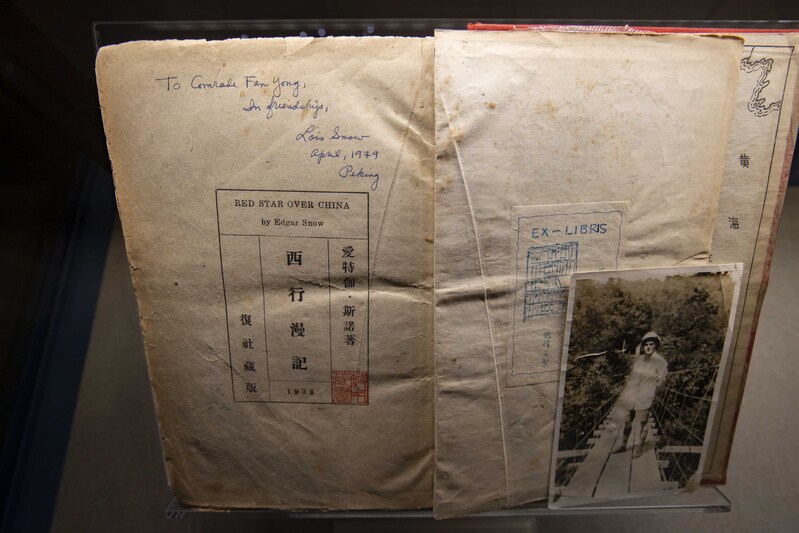 To Comrade Fan Yong,
In friendship,
Lois Snow
April, 1979
Peking
RED STAR OVER CHINA
by Edgar Snow
愛特伽·斯諾著
西行漫記
1938
復社藏版
EX-LIBRIS
黃海